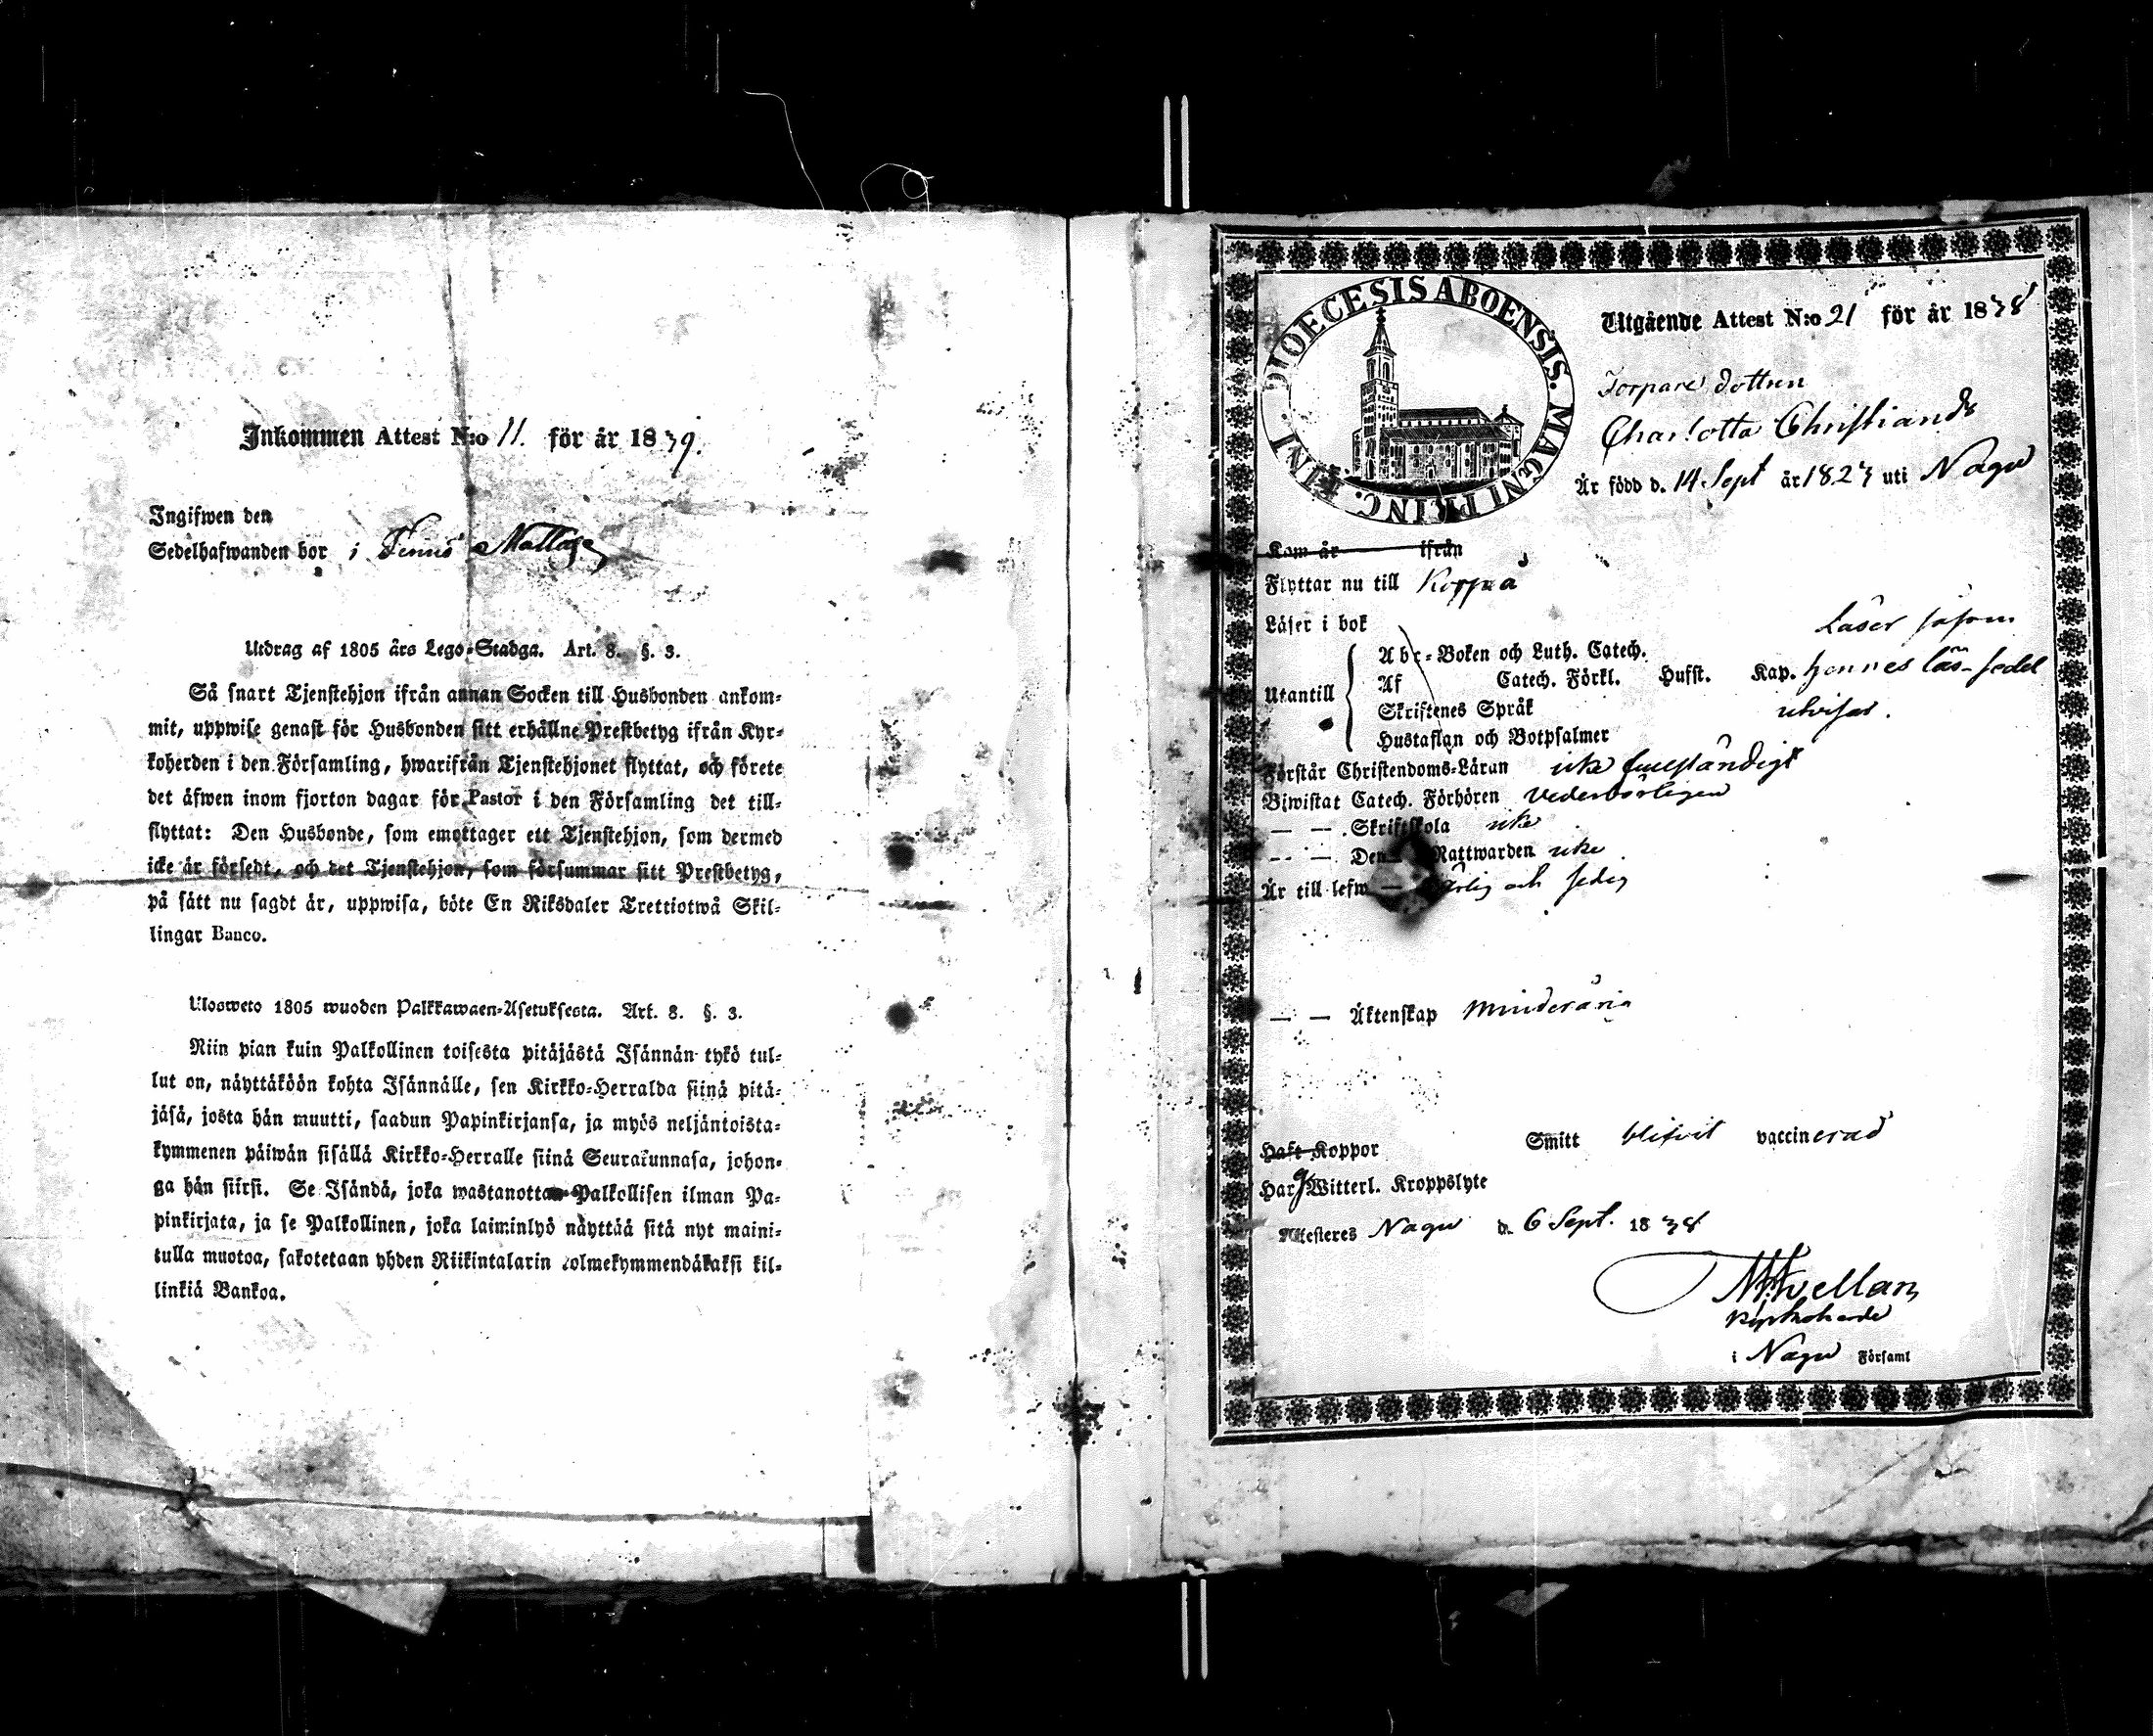 Inkommen Attest N:o 11. för år 1839.
Ingifwen den
Sedelhafwanden bor i
Utdrag af 1805 års Lego-Stadga. Art. 8. §. 3.
Så snart Tjenstehjon ifrån annan Socken till Husbonden ankom-
mit, uppwise genast för Husbonden sitt erhållne Prestbetyg ifrån Kyr-
koherden i den Församling, hwarifrån Tjenstehjonet flyttat, och förete
det äfwen inom fjorton dagar för Pastor i den Församling det till-
flyttat: Den Husbonde, som emottager ett Tjenstehjon, som dermed
icke är försedt, och det Tjenstehjon, som försummar sitt Prestbetyg,
på sätt nu sagdt är, uppwisa, böte En Riksdaler Trettiotwå Skil-
lingar Banco.
Ulosweto 1805 wuoden Palkkawaen-Asetuksesta. Art. 8. §. 3.
Niin pian kuin Palkollinen toisesta pitäjästä Isännän tykö tul-
lut on, näyttäköön kohta Isännälle, sen Kirkko-Herralda siinä pitä-
jäsä, josta hän muutti, saadun Papinkirjansa, ja myös neljäntoista-
kymmenen päiwän sisällä Kirkko-Herralle siinä Seurakunnasa, johon-
ga hän siirsi. Se Isändä, joka wastanottaa Palkollisen ilman Pa-
pinkirjata, ja se Palkollinen, joka laiminlyö näyttää sitä nyt maini-
tulla muotoa, sakotetaan yhden Riikintalarin kolmekymmendäkaksi kil-
linkiä Bankoa.
DIOECESIS ABOENSIS. MAGNI PRINC. FINL.
Utgående Attest N:o 21 för år 1838
Torpare dottren
Charlotta Christiands
Är född d. 14 Sept år 1823 uti Nagu
Kom år ifrån
Flyttar nu till Korpo
Läser i bok
Läser såsom
Abc-Boken och Luth. Catech.
Utantill Af Catech. Förkl. Husst. Kap. hennes läs-sedel
Skriftenes Språk utvisar.
Hustaflan och Botpsalmer
Förstår Christendoms-Läran icke fullständigt
Biwistat Catech. Förhören vederbörligen
— — Skriftskola icke
— — Den Nattwarden icke
Är till lefw ärlig och sedig
— — Äktenskap minderårig
Haft Koppor Smitt blifvit vaccinerad
Har ej Witterl. Kroppslyte
Attesteres Nagu d. 6 Sept. 1838
Kyrkoherde
i Nagu Församl